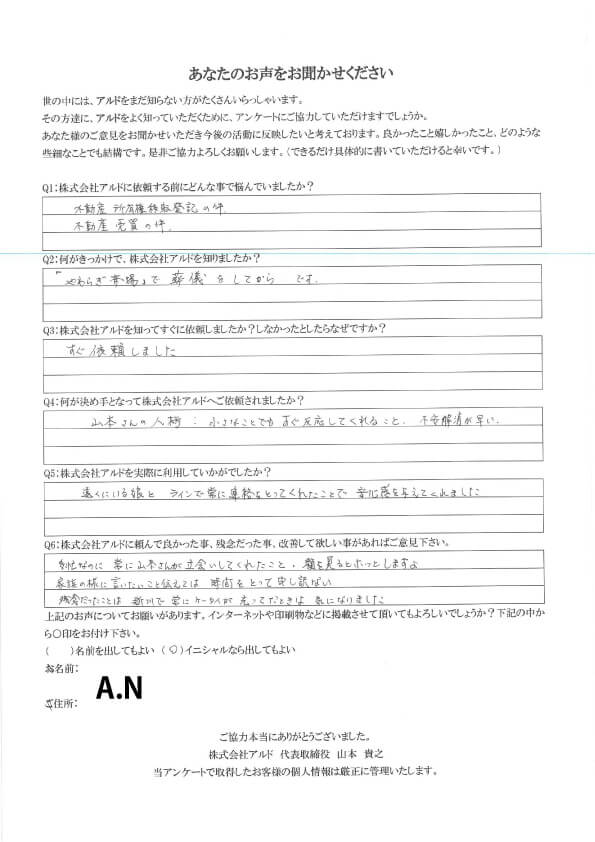 あなたのお声をお聞かせください
世の中には、アルドをまだ知らない方がたくさんいらっしゃいます。
その方達に、アルドをよく知っていただくために、アンケートにご協力していただけますでしょうか。
あなた様のご意見をお聞かせいただき今後の活動に反映したいと考えております。良かったこと嬉しかったこと、どのような
些細なことでも結構です。是非ご協力よろしくお願いします。（できるだけ具体的に書いていただけると幸いです。）
Q1：株式会社アルドに依頼する前にどんな事で悩んでいましたか？
不動産 所有権移転登記の件
不動産 売買の件
Q2：何がきっかけで、株式会社アルドを知りましたか？
「やわらぎ斎場」で 葬儀をしてから です.
Q3：株式会社アルドを知ってすぐに依頼しましたか？しなかったとしたらなぜですか？
すぐ依頼しました
Q4：何が決め手となって株式会社アルドへご依頼されましたか？
山本さんの人柄： 小さなことでも すぐ反応してくれること、 不安解消が早い.
Q5：株式会社アルドを実際に利用していかがでしたか？
遠くにいる娘と ラインで常に連絡をとってくれたことで 安心感を与えてくれました
Q6：株式会社アルドに頼んで良かった事、残念だった事、改善して欲しい事があればご意見下さい。
常に山本さんが立会いしてくれたこと、顔を見るとホッとしますよ
家族の様に言いたいこと伝えては 時間をとって申し訳ない
残念だったことは 常にケータイが 気になりました
上記のお声についてお願いがあります。インターネットや印刷物などに掲載させて頂いてもよろしいでしょうか？下記の中か
ら〇印をお付け下さい。
（　）名前を出してもよい （〇）イニシャルなら出してもよい
お名前：
A.N
ご住所：
ご協力本当にありがとうございました。
株式会社アルド 代表取締役 山本 貴之
当アンケートで取得したお客様の個人情報は厳正に管理いたします。